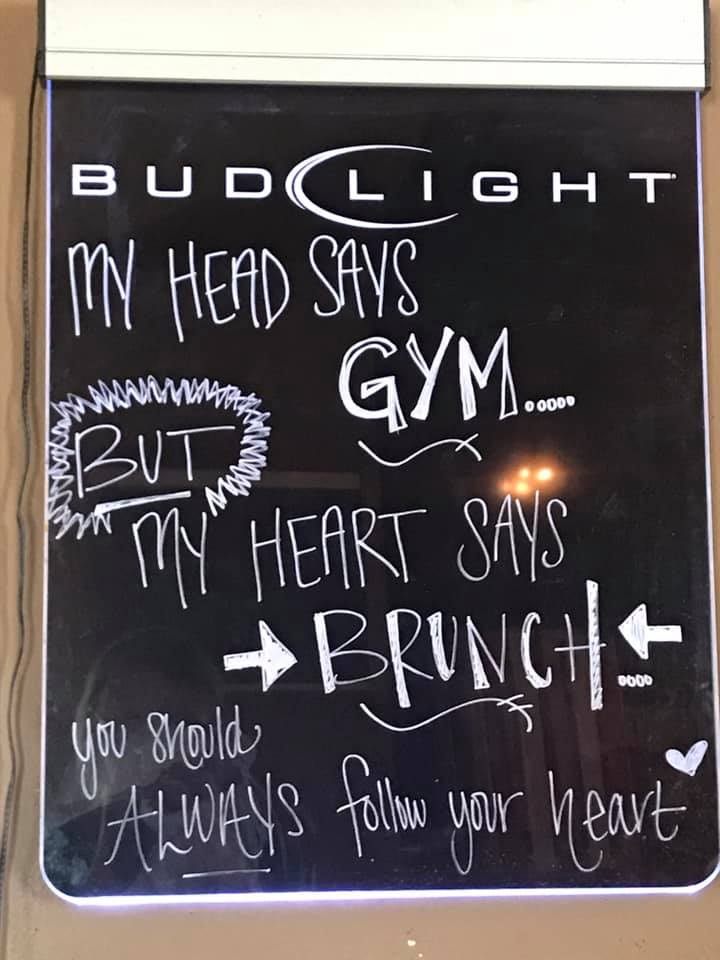 BUD LIGHT
MY HEAD SAYS
GYM.....
BUT
MY HEART SAYS
BRUNCH....
you should
ALWAYS follow your heart